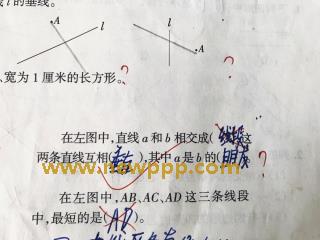 l 的垂线。
A
l
l
A
宽为 1 厘米的长方形。
在左图中,直线 a 和 b 相交成(
这
两条直线互相(垂直),其中 a 是 b 的(
www.newppp.com
在左图中,AB、AC、AD 这三条线段
中,最短的是(AD)。